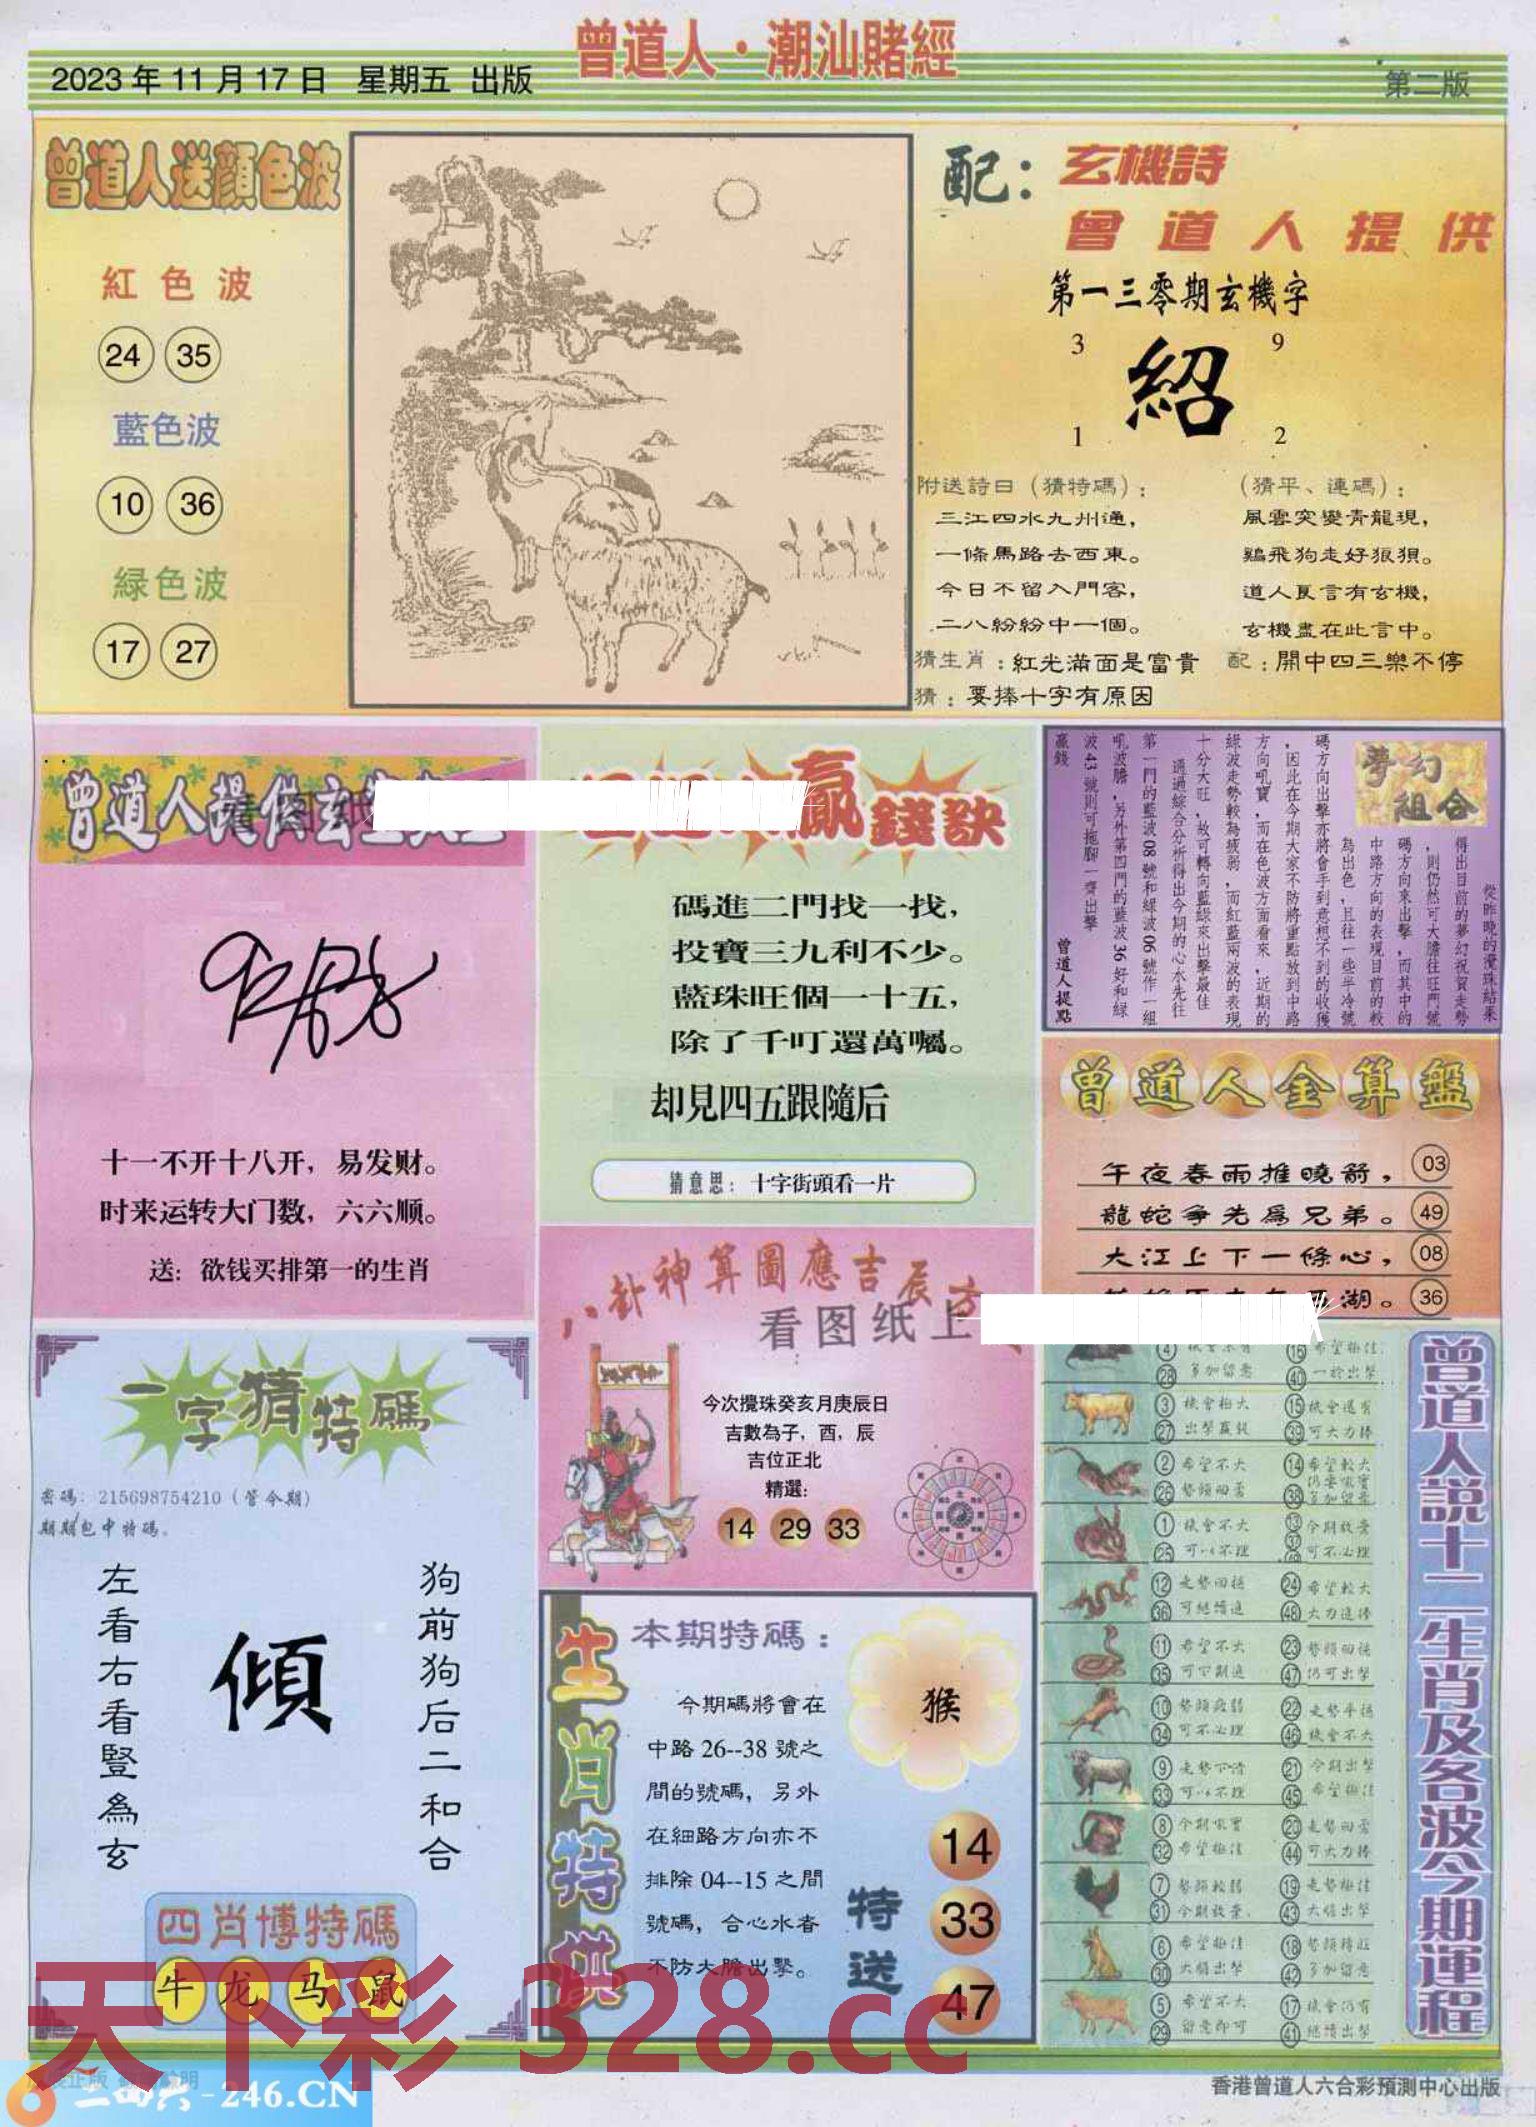 曾道人·潮汕賭經
2023年11月17日 星期五 出版
第二版
曾道人送顔色波
紅色波
24 35
藍色波
10 36
緑色波
17 27
配：玄機詩
曾道人提供
第一三零期玄機字
3 9
紹
1 2
附送詩曰（猜特碼）：
三江四水九州通，
一條馬路去西東。
今日不留入門客，
二八紛紛中一個。
（猜平、連碼）：
風雲突變青龍現，
鷄飛狗走好狠狽。
道人良言有玄機，
玄機盡在此言中。
猜生肖：紅光滿面是富貴 配：開中四三樂不停
猜：要捧十字有原因
曾道人提供玄
十一不开十八开，易发财。
时来运转大门数，六六顺。
送：欲钱买排第一的生肖
贏錢訣
碼進二門找一找，
投寶三九利不少。
藍珠旺個一十五，
除了千叮還萬囑。
却見四五跟隨后
猜意思：十字街頭看一片
夢幻組合
從昨晚的攪珠結果
得出目前的夢幻祝賀走勢
，則仍然可大膽往旺門號
碼方向來出擊，而其中的
中路方向的表現目前的較
為出色，且往一些半冷號
碼方向出擊亦將會手到意想不到的收獲
，因此在今期大家不防將重點放到中路
方向吼寶，而在色波方面看來，近期的
綠波走勢較為疲弱，而紅藍兩波的表現
十分大旺，故可轉向藍綠來出擊最佳
通過綜合分析得出今期的心水先往
第一門的藍波08號和綠波06號作一組
吼波膽，另外第四門的藍波36好和綠
波43號則可拖腳一齊出擊
贏錢
曾道人提點
曾道人金算盤
午夜春雨推曉箭， 03
龍蛇争先爲兄弟。 49
大江上下一條心， 08
湖。 36
八卦神算圖應吉辰方
看图纸上
今次攪珠癸亥月庚辰日
吉數為子，酉，辰
吉位正北
精選：
14 29 33
一字猜特碼
密碼：215698754210（管今期）
期期包中特碼。
左看右看豎為玄
傾
狗前狗后二和合
四肖博特碼
牛 龙 马 鼠
生肖特供
本期特碼：
猴
今期碼將會在
中路26--38號之
間的號碼，另外
在細路方向亦不
排除04--15之間
號碼，合心水者
不防大膽出擊。
特送
14
33
47
曾道人說十二生肖及各波今期運程
4 16 希望極佳
28 多加留意 40 一於出擊
3 機會極大 15 機會還有
27 出擊贏錢 39 可大力捧
2 希望不大 14 希望較大
26 38
1 機會不大 今期放棄
25 可以不理 可不必理
12 走勢回穩 24 希望較大
36 可繼續追 48 大力追捧
11 希望不大 23 勢頭回穩
35 47 仍可出擊
10 勢頭疲弱 22 走勢平穩
34 可不必理 46 機會不大
9 走勢下滑 21 今期出擊
33 可以不理 45 希望極佳
8 今期吼實 20
32 希望極佳 44 可大力捧
7 勢頭較弱 19 走勢極佳
31 今期放棄. 43 大膽出擊
6 希望極佳 18
30 大膽出擊 42 多加留意
5 希望不大 17 機會仍有
29 留意即可 41 繼續出擊
天下彩 328.cc
二四六-246.CN
香港曾道人六合彩預測中心出版